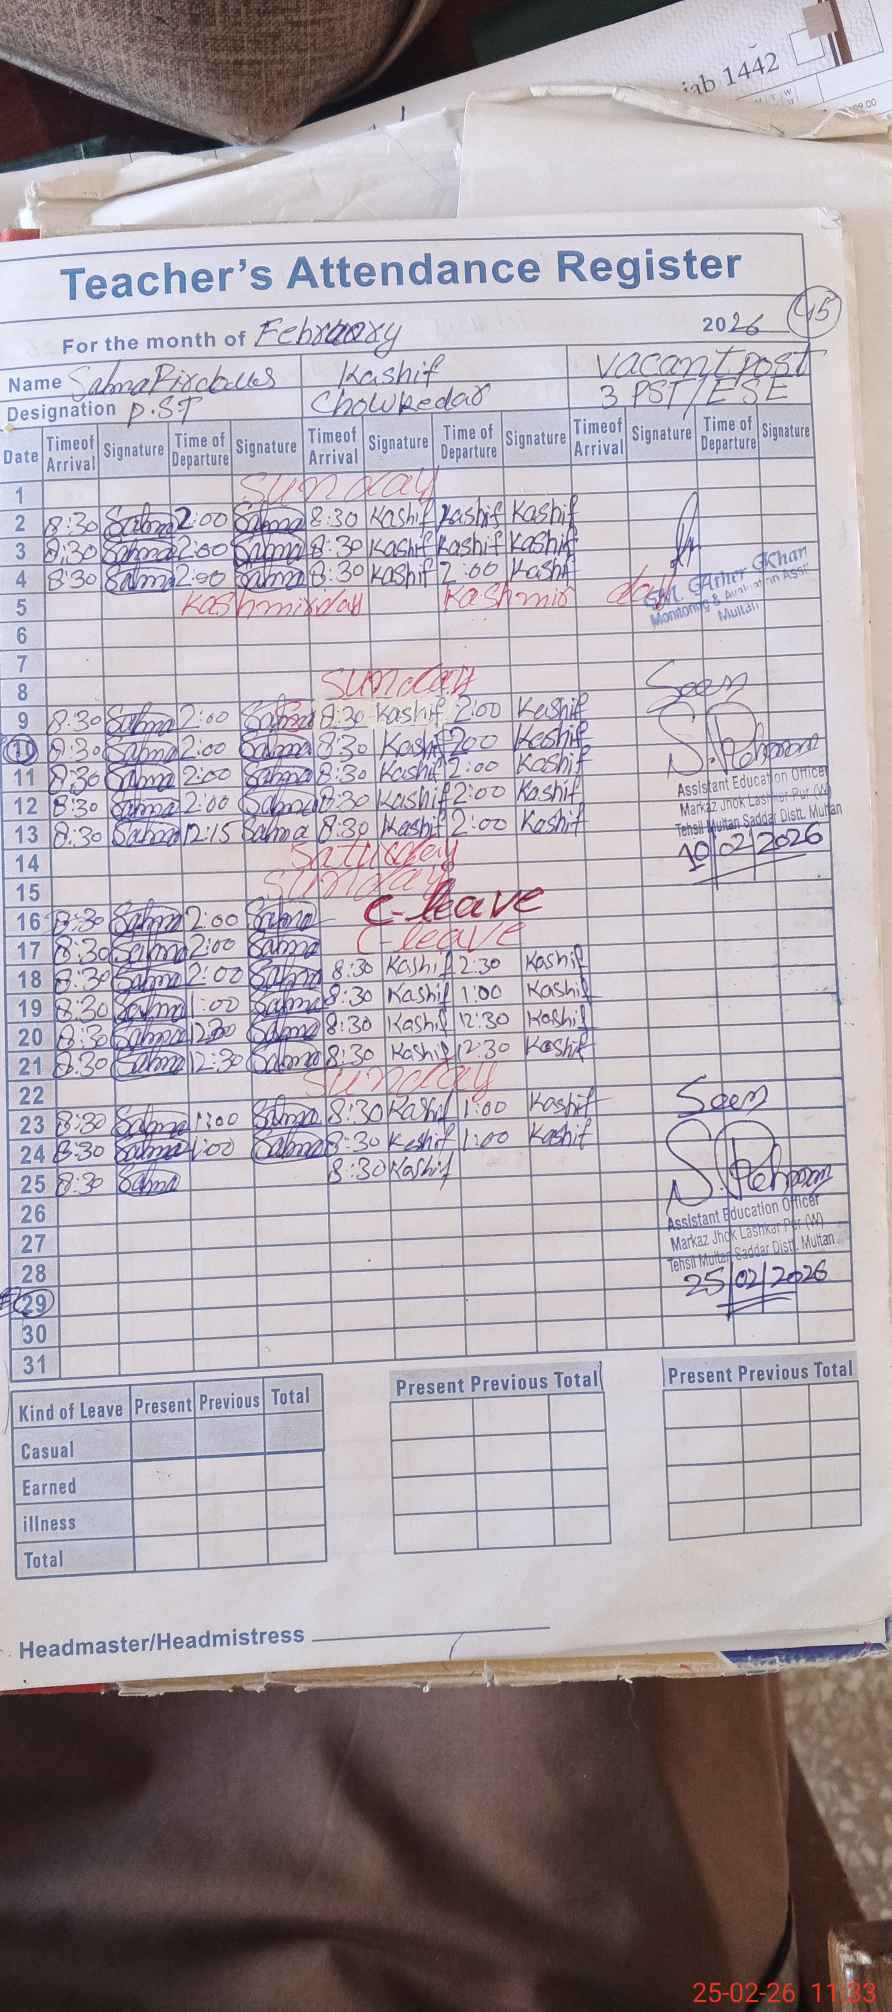 jab 1442
Teacher's Attendance Register
For the month of February 2026 45
Name Salma Firdous Kashif vacant post
Designation P.S.T Chowkedar 3 PST/ESE
Date Timeof Arrival Signature Time of Departure Signature Timeof Arrival Signature Time of Departure Signature Timeof Arrival Signature Time of Departure Signature
1 Sunday
2 8:30 Salma 2:00 Salma 8:30 Kashif Kashif Kashif
3 8:30 Salma 2:00 Salma 8:30 Kashif Kashif Kashif
4 8:30 Salma 2:00 Salma 8:30 Kashif 2:00 Kashif
5 Kashmirday Kashmir day
Khan
Monitoring & Assit
Multan
6
7
8 Sunday
Seen
9 8:30 Salma 2:00 Salma 8:30 Kashif 2:00 Kashif
10 8:30 Salma 2:00 Salma 8:30 Kashif 2:00 Kashif
11 8:30 Salma 2:00 Salma 8:30 Kashif 2:00 Kashif
12 8:30 Salma 2:00 Salma 8:30 Kashif 2:00 Kashif
13 8:30 Salma 12:15 Salma 8:30 Kashif 2:00 Kashif
Assistant Education Officer
Markaz Jhok Lashker Pur (W)
Tehsil Multan Saddar Distt. Multan
10/02/2026
14 Saturday
15 Sunday
16 8:30 Salma 2:00 Salma C-leave
17 8:30 Salma 2:00 Salma C-leave
18 8:30 Salma 2:00 Salma 8:30 Kashif 2:30 Kashif
19 8:30 Salma 1:00 Salma 8:30 Kashif 1:00 Kashif
20 8:30 Salma 12:30 Salma 8:30 Kashif 12:30 Kashif
21 8:30 Salma 12:30 Salma 8:30 Kashif 12:30 Kashif
22 Sunday
Seen
23 8:30 Salma 1:00 Salma 8:30 Kashif 1:00 Kashif
24 8:30 Salma 1:00 Salma 8:30 Kashif 1:00 Kashif
25 8:30 Salma 8:30 Kashif
26
Assistant Education Officer
Markaz Jhok Lashkar Pur (W)
Tehsil Multan Saddar Distt. Multan
25/02/2026
27
28
29
30
31
Kind of Leave Present Previous Total Present Previous Total Present Previous Total
Casual
Earned
illness
Total
Headmaster/Headmistress
25-02-26 11:33